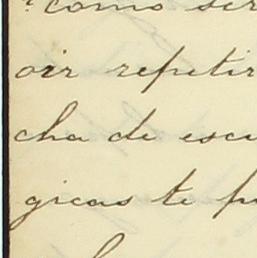 como ser
oir repetir
cha de escu
gicas te p